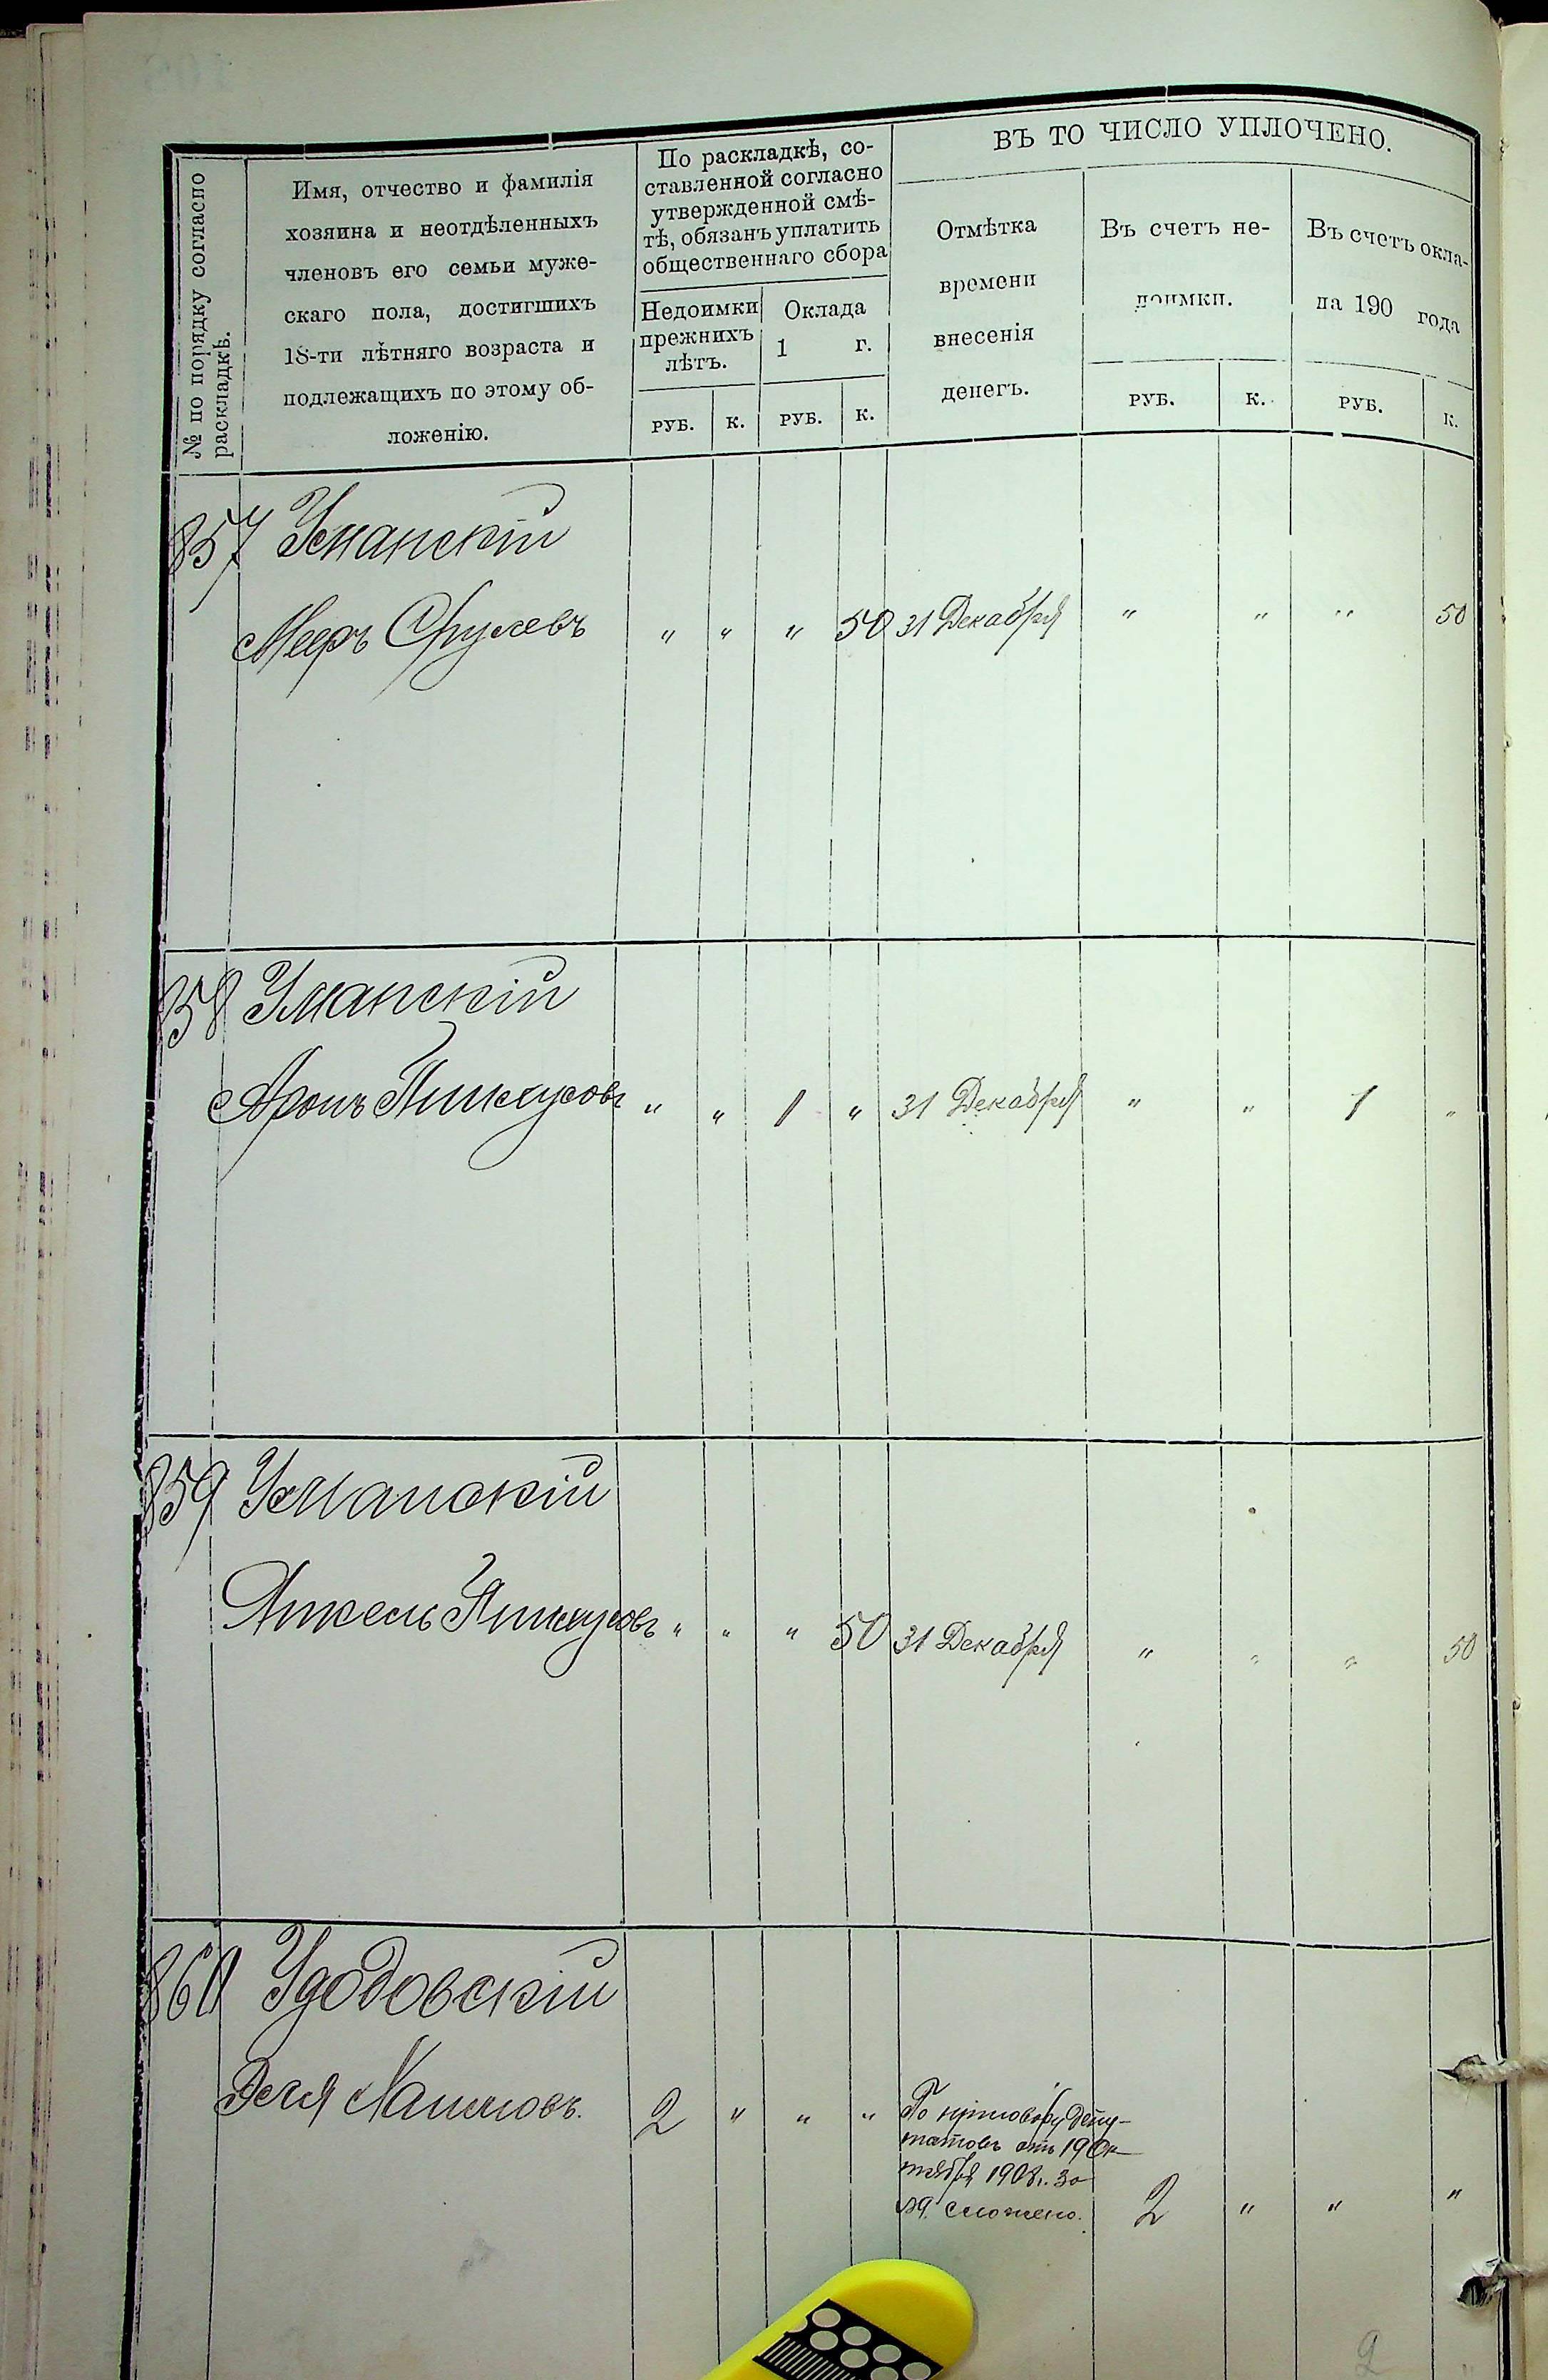 ВЪ ТО ЧИСЛО УПЛОЧЕНО.
№ по порядку согласно
раскладкѣ.
Имя, отчество и фамилія
хозяина и неотдѣленныхъ
членовъ его семьи муже-
скаго пола, достигшихъ
18-ти лѣтняго возраста и
подлежащихъ по этому об-
ложенію.
По раскладкѣ, со-
ставленной согласно
утвержденной смѣ-
тѣ, обязанъ уплатить
общественнаго сбора
Недоимки
прежнихъ
лѣтъ.
Оклада
1 г.
Отмѣтка
времени
внесенія
денегъ.
Въ счетъ не-
доимки.
Въ счетъ окла-
да 190 года
РУБ. К. РУБ. К. РУБ. К. РУБ. К.
857 Уманскій
Мееръ Срулевъ " " " 50 31 Декабря " " " 50
858 Уманскій
Аронъ Пинкусовъ " " 1 " 31 Декабря " " 1 "
859 Уманскій
Анкель Пинкусовъ " " " 50 31 Декабря " " " 50
860 Удодовскій
Деля 2 " " " По приговору депу-
татовъ отъ 19 Ок-
тября 1908г. за
сложено. 2 " " "
2